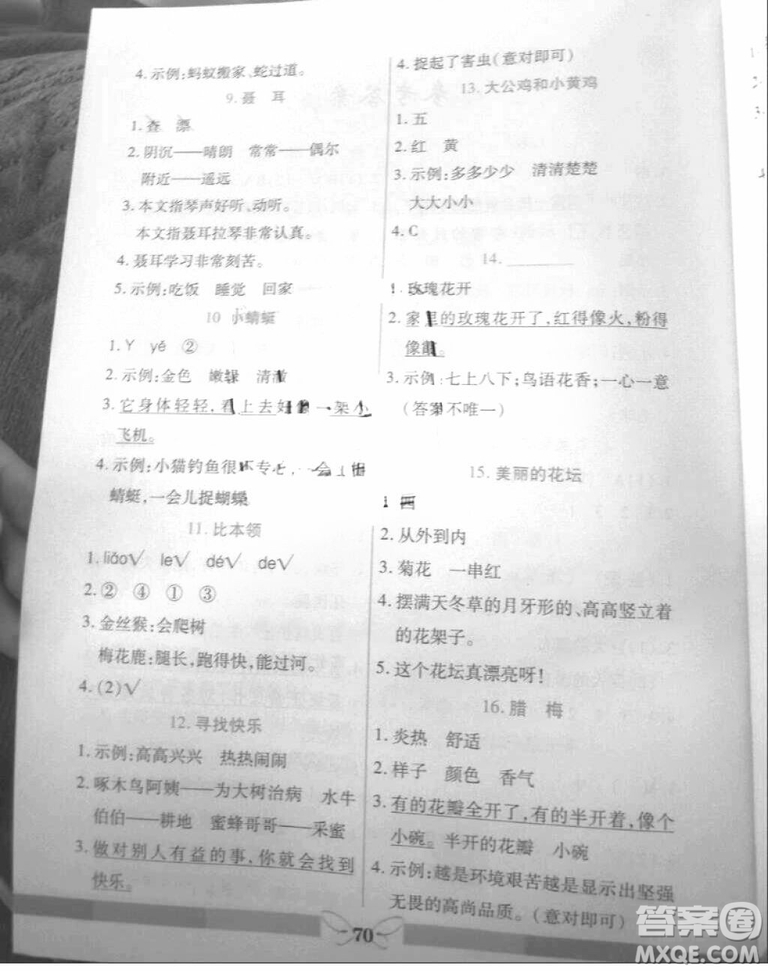 4. 示例:蚂蚁搬家、蛇过道。
9. 聂 耳
1. 查 漂
2. 阴沉——晴朗 常常——偶尔
附近——遥远
3. 本文指琴声好听、动听。
本文指聂耳拉琴非常认真。
4. 聂耳学习非常刻苦。
5. 示例:吃饭 睡觉 回家
10 小蜻蜓
1. Y yě ②
2. 示例:金色 嫩 清
3. 它身体轻轻,看上去好 一架小
飞机。
4. 示例:小猫钓鱼很 专心 一会
蜻蜓,一会儿捉蝴蝶
11. 比本领
1. liǎo√ le√ dé√ de√
2. ② ④ ① ③
3. 金丝猴:会爬树
梅花鹿:腿长,跑得快,能过河。
4. (2)√
12. 寻找快乐
1. 示例:高高兴兴 热热闹闹
2. 啄木鸟阿姨——为大树治病 水牛
伯伯——耕地 蜜蜂哥哥——采蜜
3. 做对别人有益的事,你就会找到
快乐。
4. 捉起了害虫(意对即可)
13. 大公鸡和小黄鸡
1. 五
2. 红 黄
3. 示例:多多少少 清清楚楚
大大小小
4. C
14.
1. 玫瑰花开
2. 家里的玫瑰花开了,红得像火,粉得
像
3. 示例:七上八下;鸟语花香;一心一意
(答案不唯一)
15. 美丽的花坛
1
2. 从外到内
3. 菊花 一串红
4. 摆满天冬草的月牙形的、高高竖立着
的花架子。
5. 这个花坛真漂亮呀!
16. 腊 梅
1. 炎热 舒适
2. 样子 颜色 香气
3. 有的花瓣全开了,有的半开着,像个
小碗。半开的花瓣 小碗
4. 示例:越是环境艰苦越是显示出坚强
无畏的高尚品质。(意对即可)
70
答案圈
MXQE.COM